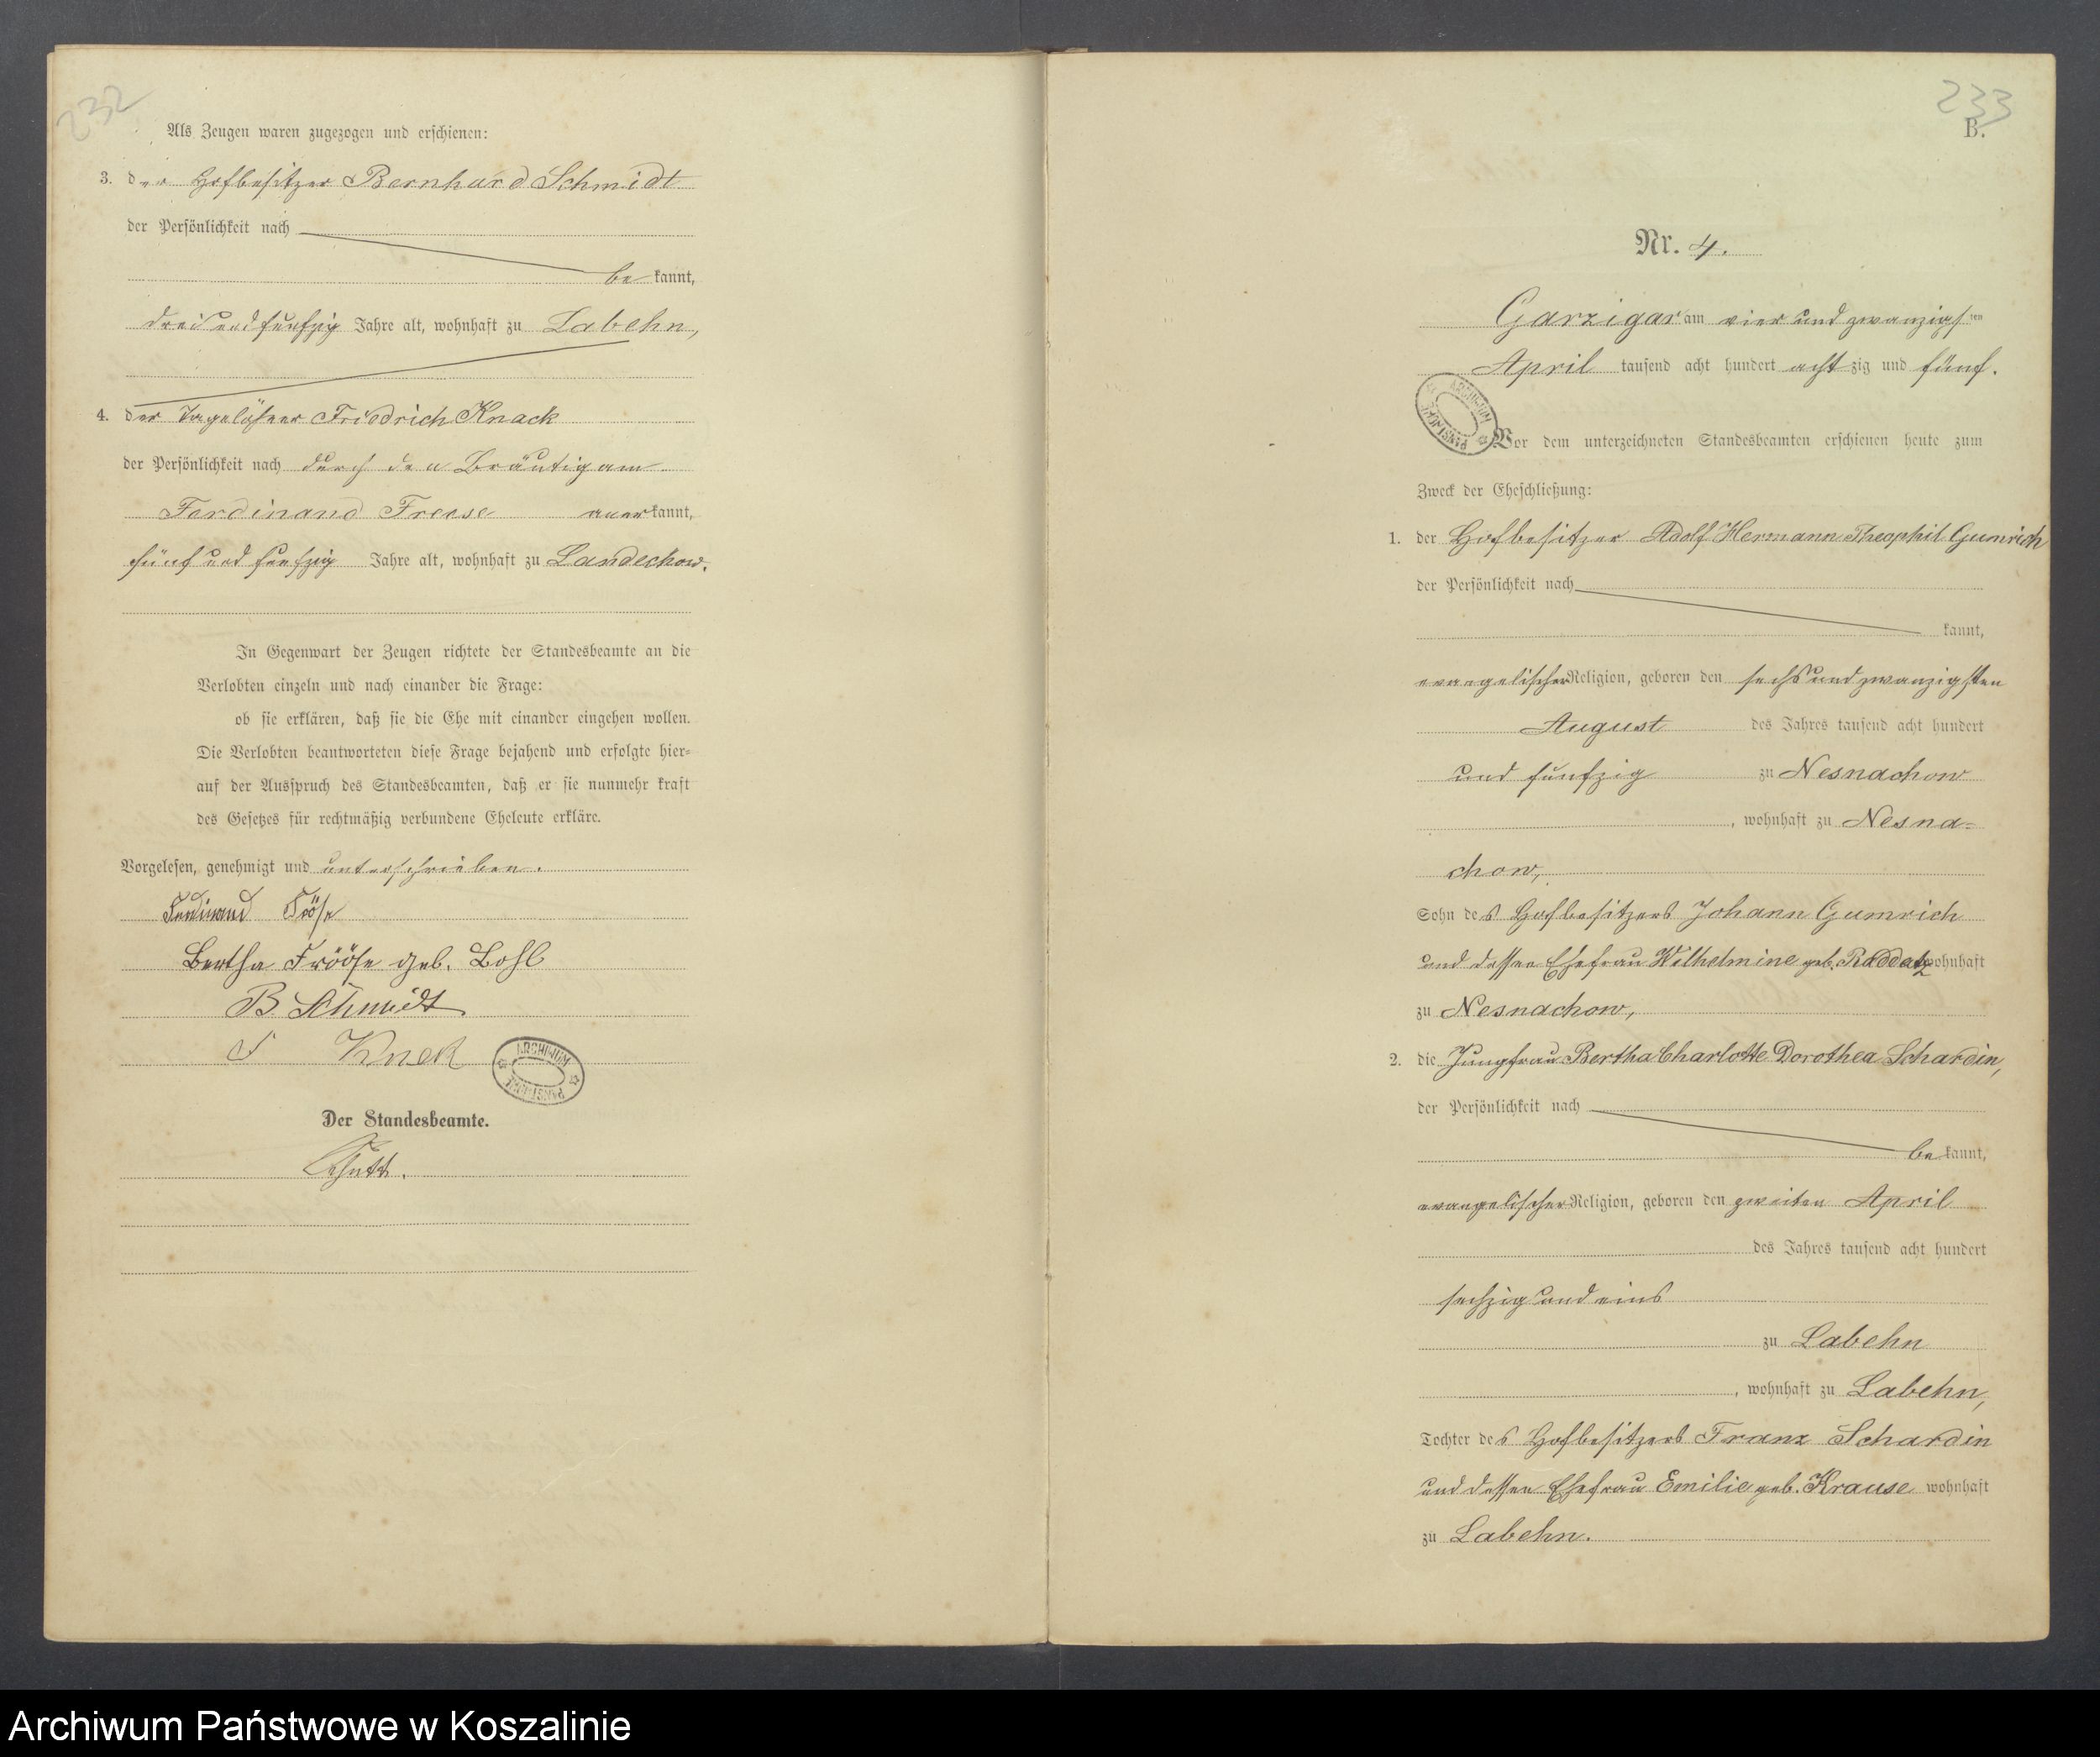 232
Als Zeugen waren zugezogen und erschienen:
3. der Hofbesitzer Bernhard Schmidt
der Persönlichkeit nach
be kannt,
drei und funfzig Jahre alt, wohnhaft zu Labehn,
4. der Tagelöhner Friedrich Knack
der Persönlichkeit nach durch den Bräutigam
Ferdinand Freese aner kannt,
fünf und funfzig Jahre alt, wohnhaft zu Landechow.
In Gegenwart der Zeugen richtete der Standesbeamte an die
Verlobten einzeln und nach einander die Frage:
ob sie erklären, daß sie die Ehe mit einander eingehen wollen.
Die Verlobten beantworteten diese Frage bejahend und erfolgte hier-
auf der Ausspruch des Standesbeamten, daß er sie nunmehr kraft
des Gesetzes für rechtmäßig verbundene Eheleute erkläre.
Vorgelesen, genehmigt und unterschrieben.
Ferdinand Fröse
Bertha Frööse geb. Bohl
B Schmidt
F Knack
ARCHIWUM PAŃSTWOWE
Der Standesbeamte.
233
B.
Nr. 4.
Garzigar am vier und zwanzigsten
April tausend acht hundert achtzig und fünf.
ARCHIWUM PAŃSTWOWE
Vor dem unterzeichneten Standesbeamten erschienen heute zum
Zweck der Eheschließung:
1. der Hofbesitzer Adolf Hermann Theophil Gumrich
der Persönlichkeit nach
kannt,
evangelischer Religion, geboren den sechs und zwanzigsten
August des Jahres tausend acht hundert
und funfzig zu Nesnachow
, wohnhaft zu Nesna=
chow,
Sohn des Hofbesitzers Johann Gumrich
und dessen Ehefrau Wilhelmine geb. Raddatz wohnhaft
zu Nesnachow,
2. die Jungfrau Bertha Charlotte Dorothea Schardin,
der Persönlichkeit nach
be kannt,
evangelischer Religion, geboren den zweiten April
des Jahres tausend acht hundert
sechzig und eins
zu Labehn
, wohnhaft zu Labehn,
Tochter des Hofbesitzers Franz Schardin
und dessen Ehefrau Emilie geb. Krause wohnhaft
zu Labehn.
Archiwum Państwowe w Koszalinie